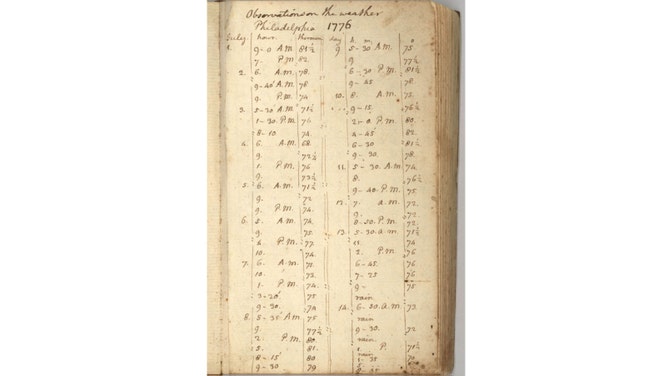 Observations on the weather
Philadelphia 1776
July hour. thermom.
1. 9-0 A.M. 81½
7. P.M. 82.
2. 6. A.M. 78.
9-40' A.M. 78
9. P.M. 74.
3. 5-30. A.M. 71½
1-30. P.M. 76
8-10. 74.
4. 6. A.M. 68.
9. 72¼
1. P.M. 76
9. 73½
5. 6. A.M. 71½
9. 72
9. P.M. 74.
6. 5. A.M. 74.
9. 75.
4. P.M. 77.
10. 74.
7. 6. A.M.
10. 73.
1. P.M. 74.
3-20' 75
9-30.
8. 5-35' A.M. 75
9. 77½
2. P.M. 80
5. 81.
8-15' 80
9-30 79
day h. m. o
9. 5-30. A.M. 75
9 77½
6-30. P.M. 81½
9-45 78
10. 8. A.M. 75.
9-15. 76½
2-0. P.M. 80.
4-45 82.
6-30 81½
9-30. 78.
11. 5-30 A.M. 74
8. 76½
9-40. P.M. 75.
12. 7. a.m. 72
9. 72
8-50. P.M. 72.
13. 5-30. a.m 71½
11. 74
P.M. 76
6-45. 76
7-25 76
9- 75
rain
14. 6-50. a.m 73
rain
9-30. 72
rain
1. P. 71½
rain
1-35 70